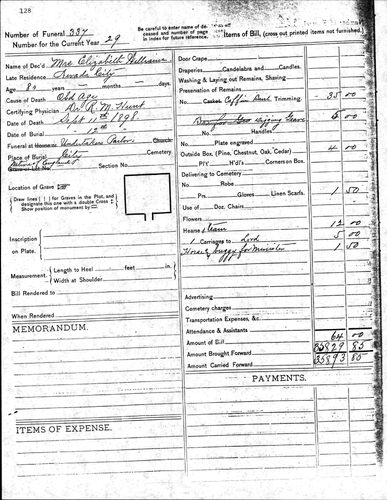 128
Number of Funeral 337
Number for the Current Year 29
Be careful to enter name of deceased and number of page in index for future reference.
Items of Bill, (cross out printed items not furnished.)
Name of Dec'd Mrs Elizabeth Williams
Late Residence Nevada City
Age 80 years months days.
Cause of Death Old Age
Certifying Physician Dr. R. M. Hunt
Date of Death Sept 11th 1898.
Date of Burial " 12th " .
Funeral at House or Undertaker Parlor
Place of Burial City Cemetery
Native of England
Grave or Lot No. Section No.
Location of Grave
Draw lines ( ) for Graves in the Plot, and designate this one with a double Cross
Show position of monument by
Inscription on Plate.
Measurement. Length to Heel feet in.
Width at Shoulder
Bill Rendered to
When Rendered
MEMORANDUM.
ITEMS OF EXPENSE.
Door Crape
Draperies Candelabra and Candles.
Washing & Laying out Remains, Shaving
Preservation of Remains
No Casket, Coffin and Trimming. 35 00
Box for Grave Digging Grave 5 00
No Handles
Plate engraved
Outside Box, (Pine, Chestnut, Oak, Cedar) 4 00
P'l'y H'd's Corners on Box.
Delivering to Cemetery
No Robe
Prs. Gloves Linen Scarfs. 1 50
Use of Doz. Chairs
Flowers
Hearse & team 12 00
1 Carriages to 5 00
Horse & buggy for Minister 1 50
Advertising
Cemetery charges
Transportation Expenses, &c.
Attendance & Assistants
Amount of Bill 64 00
Amount Brought Forward 35829 85
Amount Carried Forward 35893 85
PAYMENTS.